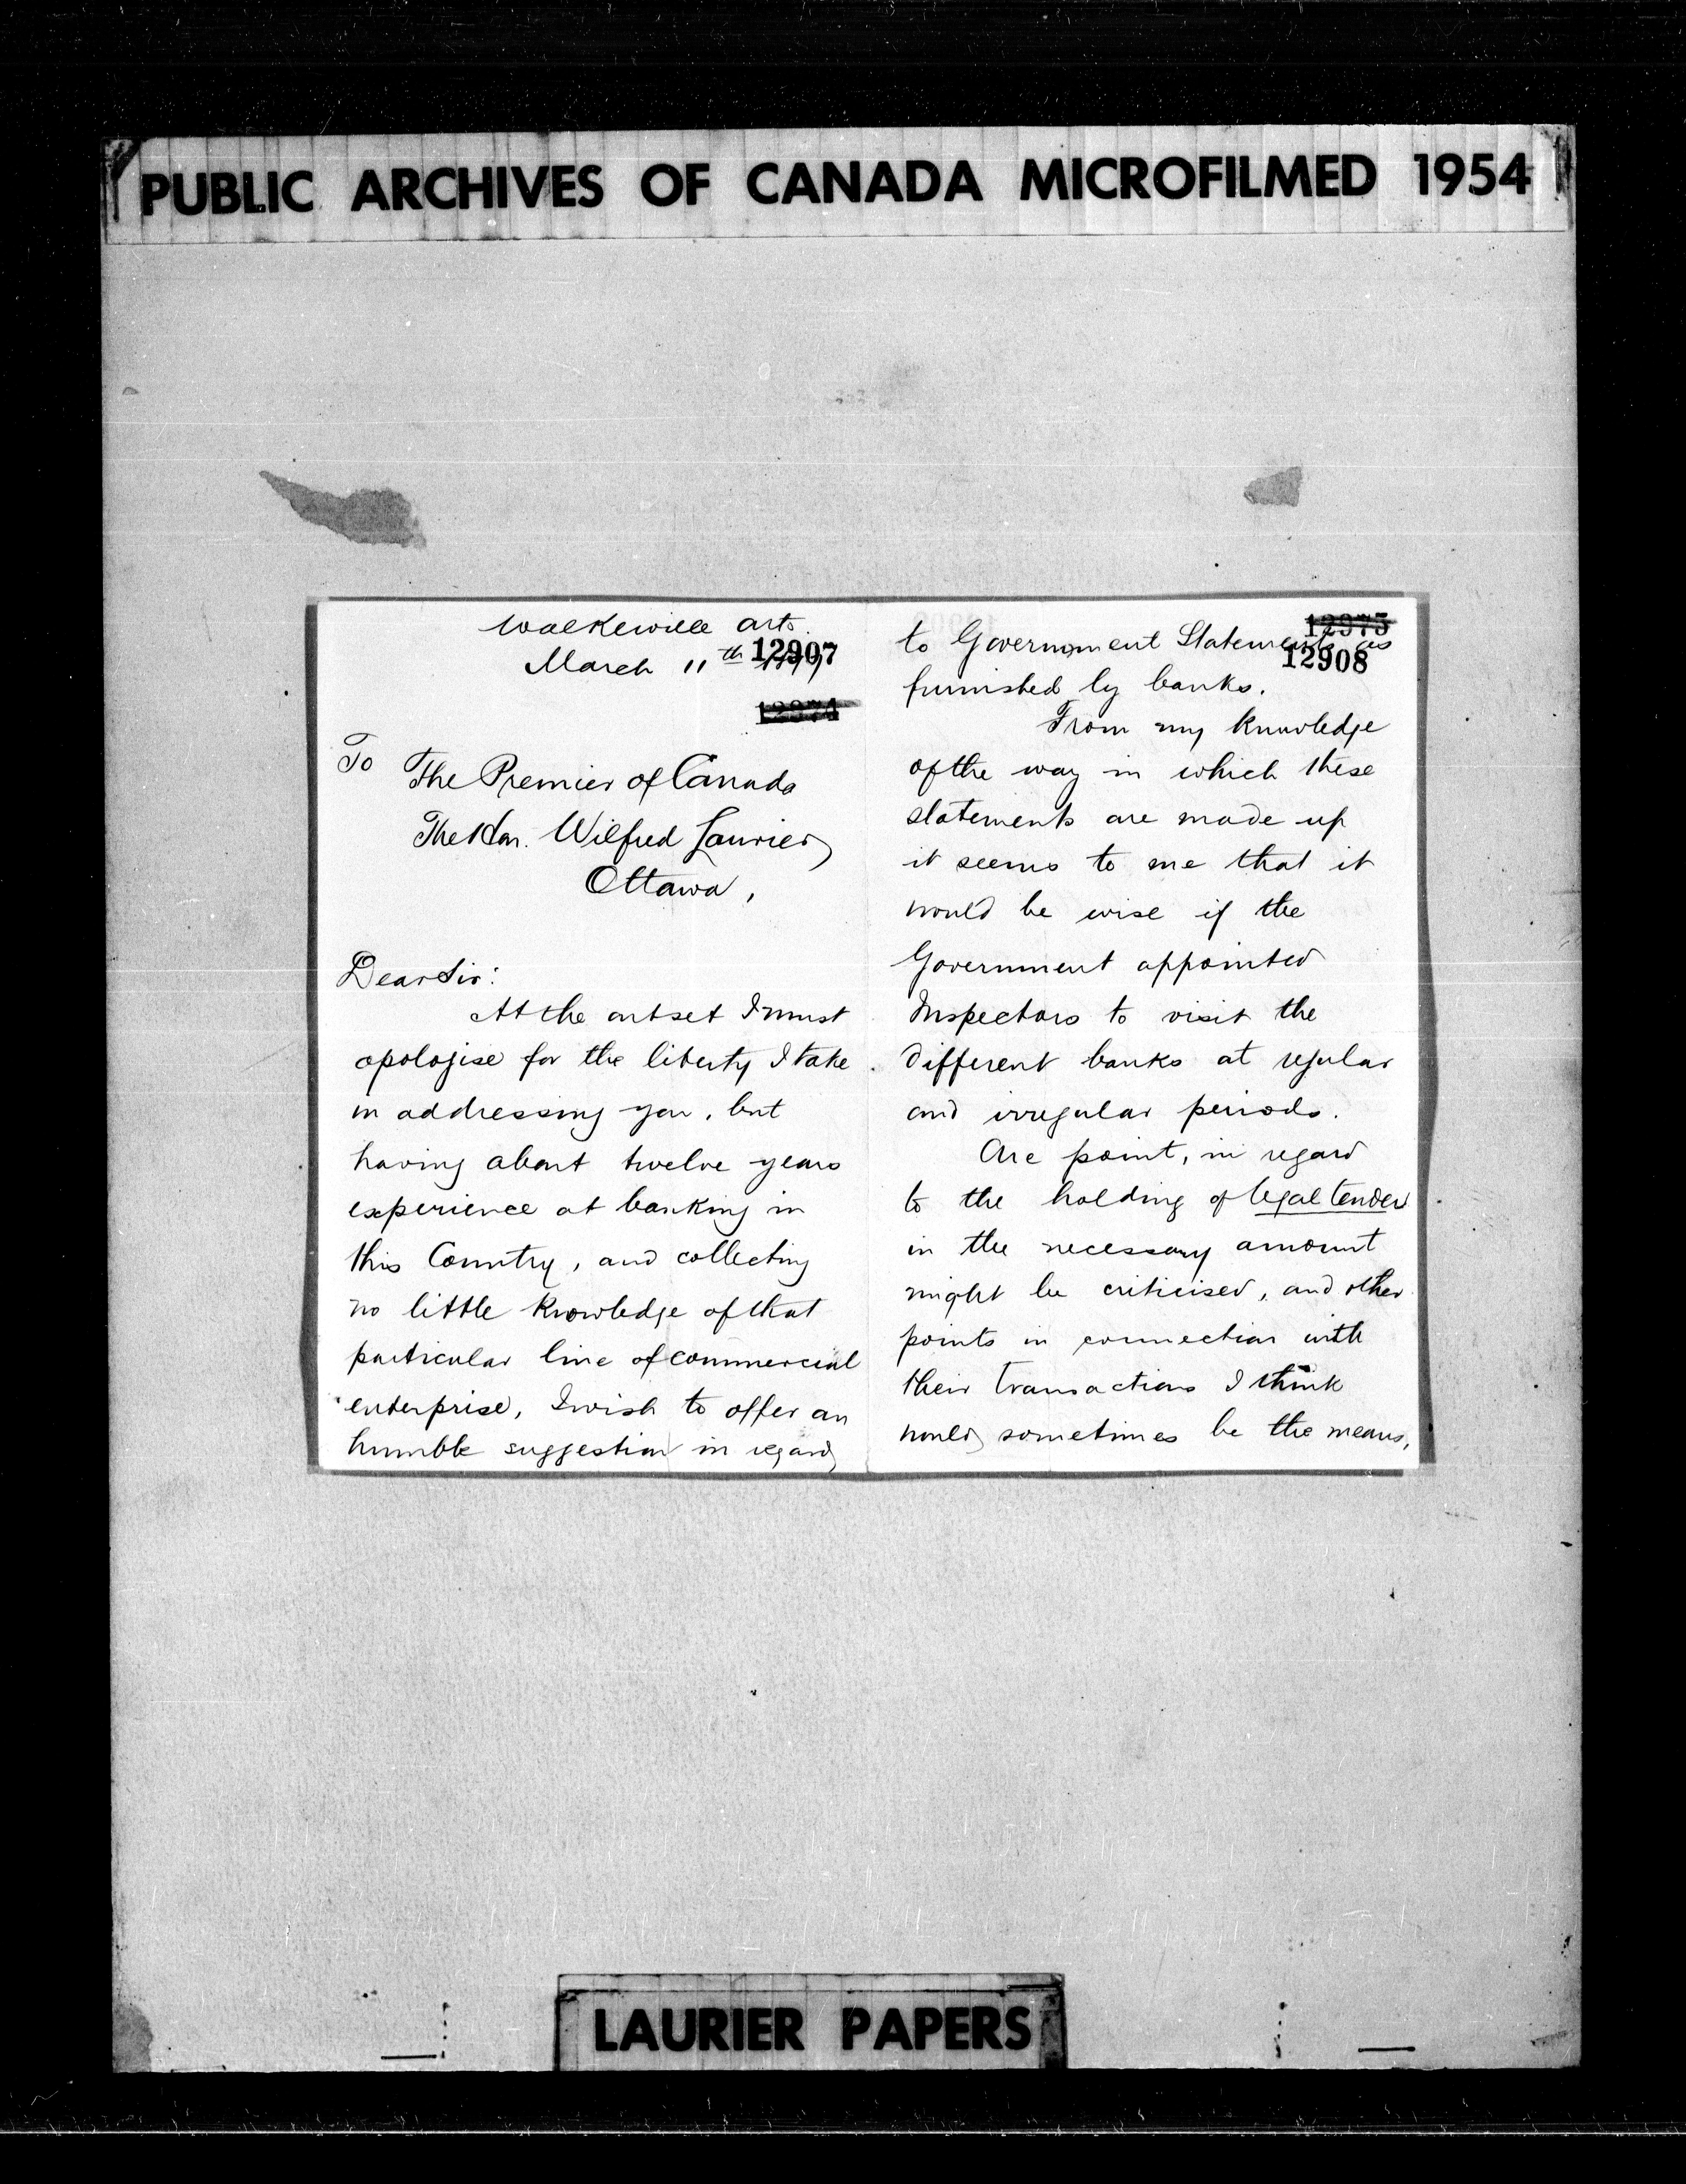 PUBLIC ARCHIVES OF CANADA MICROFILMED 1954
Walkerville Ont.
March 11th
12907
12974
To The Premier of Canada
The Hon. Wilfred Laurier,
Ottawa,
Dear Sir:
At the outset I must
apologise for the liberty I take
in addressing you, but
having about twelve years
experience at banking in
this Country, and collecting
no little knowledge of that
particular line of commercial
enterprise, I wish to offer an
humble suggestion in regard
12975
to Government Statements as
12908
furnished by banks.
From my knowledge
of the way in which these
statements are made up
it seems to me that it
would be wise if the
Government appointed
Inspectors to visit the
different banks at regular
and irregular periods.
One point, in regard
to the holding of legal tender
in the necessary amount
might be criticised, and other
points in connection with
their transactions I think
would sometimes be the means,
LAURIER PAPERS